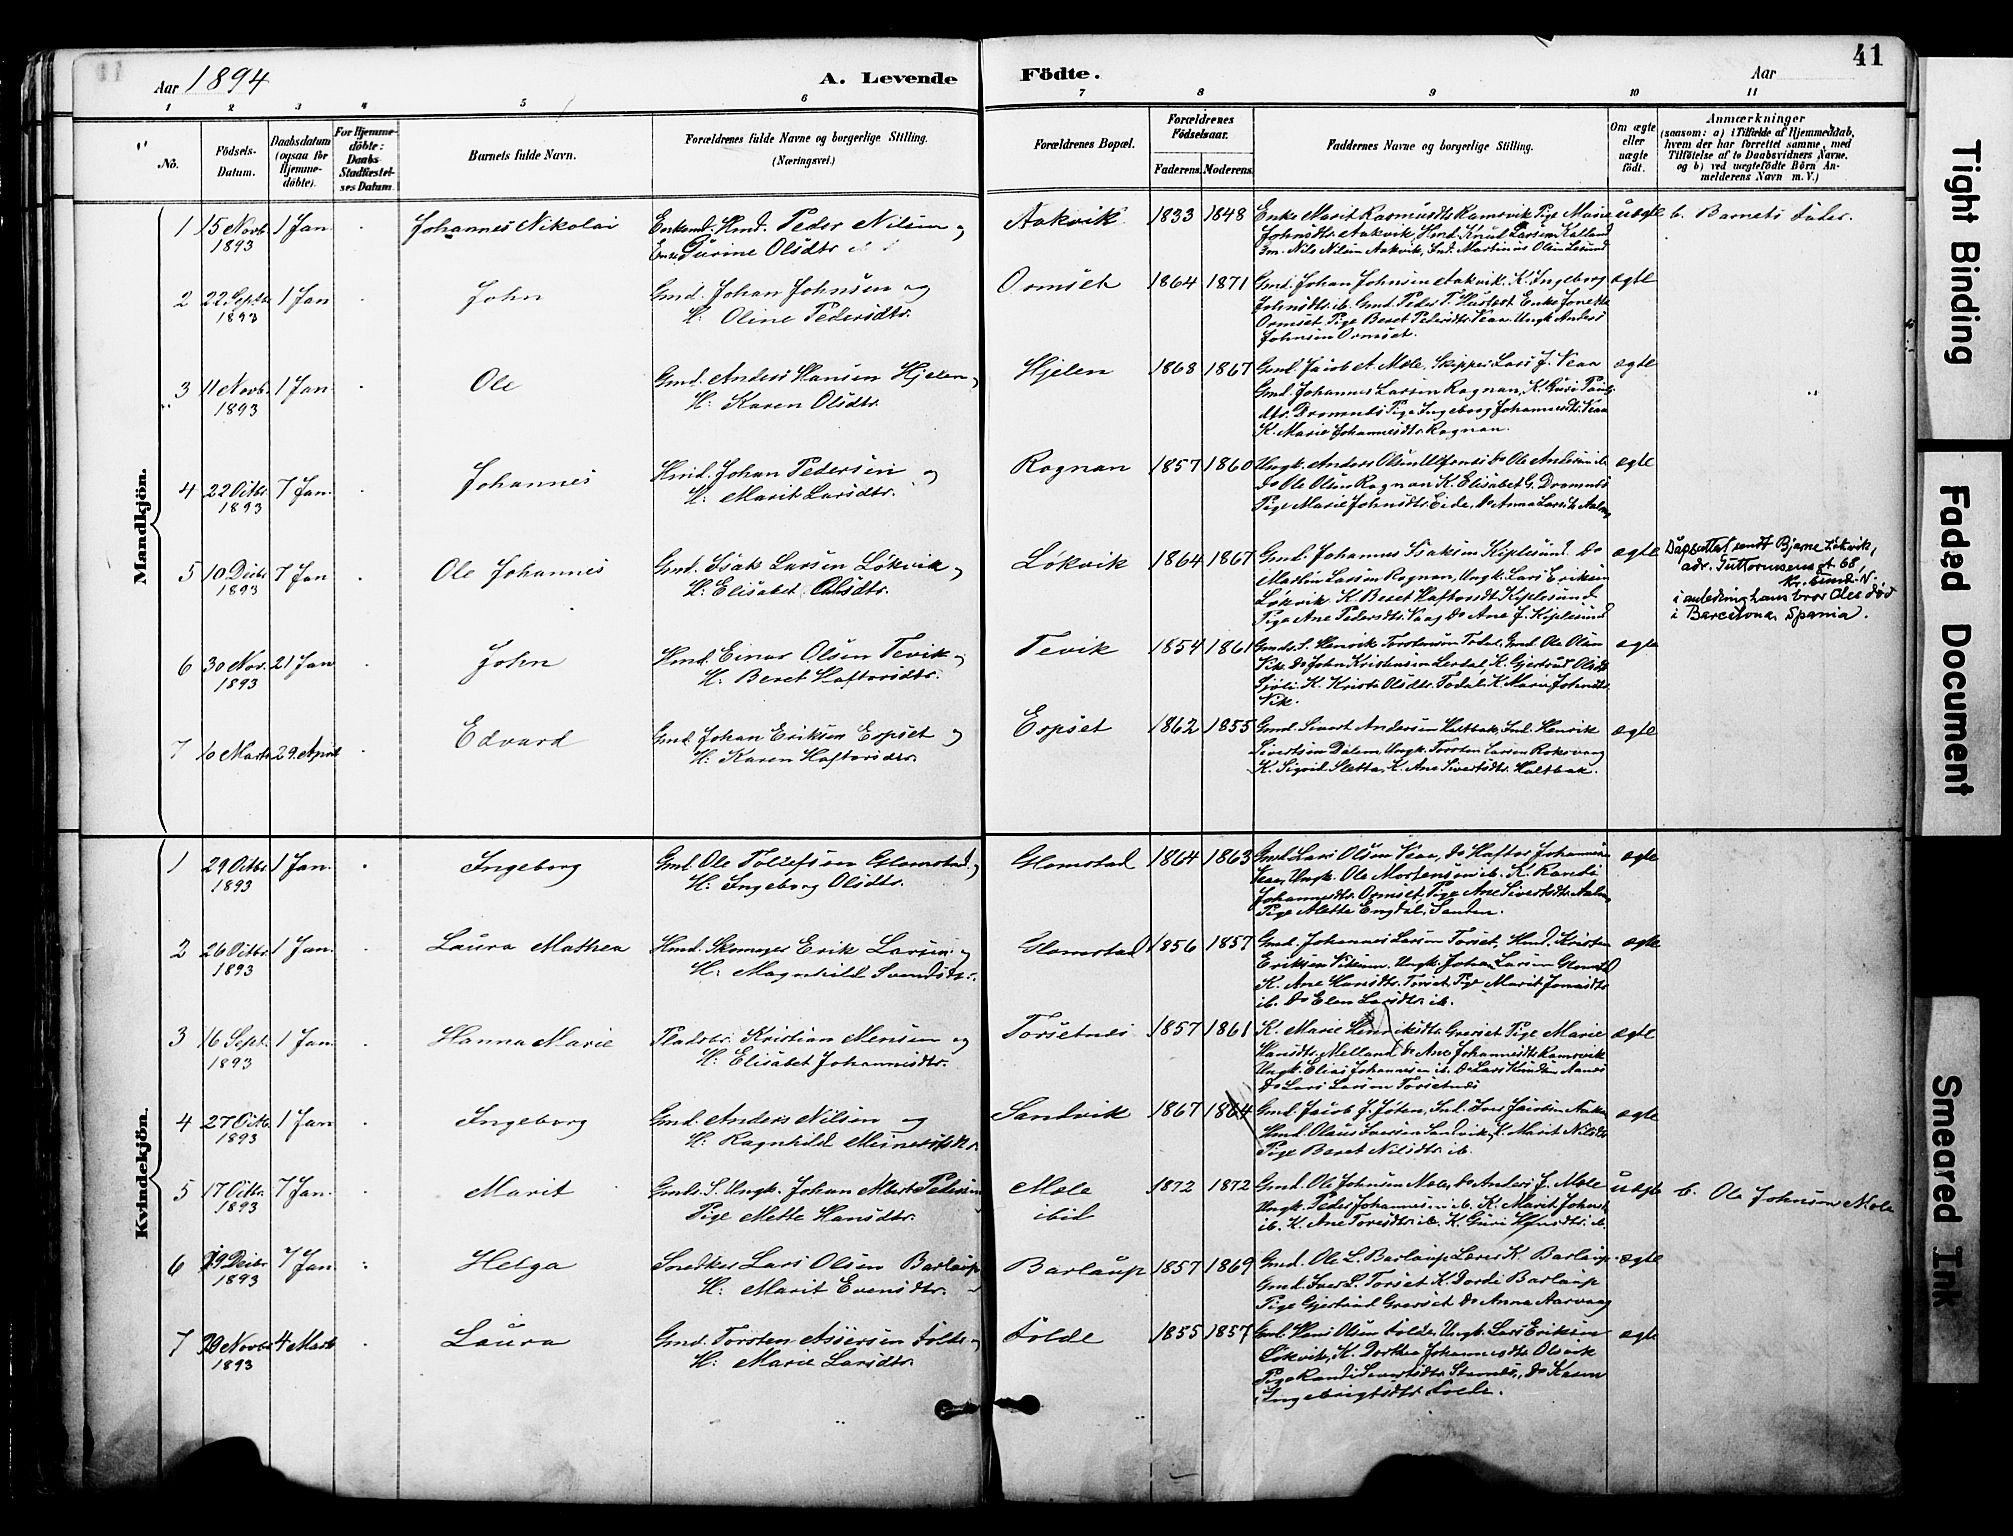 41
Aar 1894
A. Levende
Födte.
Aar
1 2 3 4 5 6 7 8 9 10 11
No.
Födsels-Datum.
Daabsdatum (ogsaa för Hjemme-döbte).
For Hjemme-döbte: Daabs-Stadfæstel-ses Datum.
Barnets fulde Navn.
Forældrenes fulde Navne og borgerlige Stilling.
(Næringsvei.)
Forældrenes Bopæl.
Forældrenes Födselsaar.
Faderens. Moderens.
Faddernes Navne og borgerlige Stilling.
Om ægte eller uægte födt.
Anmærkninger
(saasom: a) i Tilfælde af Hjemmedaab,
hvem der har forrettet samme, med
Tilföielse af to Daabsvidners Navne,
og b) ved uægtefödte Börn An-
melderens Navn m. V.)
Mandkjön.
1 15 Novb. 1893 1 Jan Johannes Nikolai Enkemd. Hmd. Peder Nilsen og
Enke Gurine Olsdtr.
Aakvik 1833 1848 Enke Marit Rasmusdtr. Ramsvik Pige Marie
Johnsdtr. Aakvik, Hmd. Knud Larsen Kalland
Gm. Nils Nilsen Aakvik, Ind. Martinus Olsen
uægte b. Barnets Fader.
2 22 Septr. 1893 1 Jan John Gmd. Johan Johnsen og
H. Oline Pedersdtr.
Ormset 1864 1871 Gmd. Johan Johnsen Aakvik. K. Ingeborg
Johnsdtr. ib. Gmd. Peder T. Enke Jonette
Ormset. Pige Beret Pedersdtr. Veaa. Ungk. Anders
Johnsen Ormset.
ægte
3 11 Novb. 1893 1 Jan Ole Gmd. Anders Hansen Hjelen og
H. Karen Olsdtr.
Hjelen 1868 1867 Gmd. Jacob A. Mole, Skipper Lars J. Veaa
Gmd. Johannes Larsen Rognan, K. Guri
dtr. Dromnes Pige Ingeborg Johannesdtr. Veaa
K. Marie Johannesdtr. Rognan.
ægte
4 22 Octbr. 1893 7 Jan. Johannes Hmd. Johan Pedersen og
H. Marit Larsdtr.
Rognan 1857 1860 Ungk. Anders Olsen Do Ole Andersen ib
Do Ole Olsen Rognan K. Elisabet G. Dromnes
Pige Marie Johnsdtr. Eide, Do Anna Larsdtr.
ægte
5 10 Decbr. 1893 7 Jan Ole Johannes Gmd. Isak Larsen Løkvik og
H. Elisabet Olsdtr.
Løkvik 1864 1867 Gmd. Johannes Isaksen Kiplesund. Do
Martin Larsen Rognan, Ungk. Lars Eriksen
Løkvik K. Beret Haftorsdt. Kiplesund
Pige Ane Pedersdtr. Vaag Do Ane J. Kiplesund
ægte
Dåpsattest sendt Bjarne Løkvik,
adr. gt 68,
Kr.sund. N.
i anledning hans bror Oles død
i Barcelona, Spania.
6 30 Nov. 1893 21 Jan John Hmd. Einar Olsen Tevik og
H. Beret Haftorsdtr.
Tevik 1854 1861 Gmds. S. Henrik Torstensen Todal, Gmd. Ole Olsen
Vik. Do John Kristensen Lerdal, K. Gjertrud Olsdt
K. Kristi Olsdtr. Todal, K. Marie Johnsdtr.
Vik.
ægte
7 10 Marts 29 April Edvard Gmd. Johan Eriksen Espset og
H. Karen Haftorsdtr.
Espset 1862 1855 Gmd. Sivert Andersen Haltbak, Ind. Henrik
Sivertsen Dalem, Ungk. Torsten Larsen Roksvaag
K. Sigrid Sletta, K. Ane Sivertsdtr. Haltbak.
ægte
Kvindekjön.
1 29 Octbr. 1893 1 Jan. Ingeborg Gmd. Ole Tollefsen Glomstad og
H. Ingeborg Olsdtr.
Glomstad 1864 1863 Gmd. Lars Olsen Veaa, Do Haftor Johannesen
Veaa, Ungk. Ole Mortensen ib. K. Randi
Johannesdtr. Ormset, Pige Ane Sivertsdtr.
Pige Alette Engdal, Sanden.
ægte
2 26 Octbr. 1893 1 Jan. Laura Mathea Hmd. Skomager Erik Larsen og
H. Magnhild Svendsdtr.
Glomstad 1856 1857 Gmd. Johannes Larsen Torset, Hmd. Kristen
Eriksen Ungk. Johan Larsen Glomstad
K. Ane Hansdtr. Torset, Pige Marit Jonsdtr.
ib. Do Elen Larsdtr. ib.
ægte
3 16 Sept. 1893 1 Jan. Hanna Marie Pladsbr. Kristian Mensen og
H. Elisabet Johannesdtr.
Torsetnes 1857 1861 K. Marie Henriksdtr. Grerset Pige Marie
Hansdtr. Melland, Do Ane Johannesdtr. Ramsvik
Ungk. Elias Johannesen ib. Do Lars Knudsen Aanes
Do Lars Larsen Torsetnes
ægte
4 27 Octbr. 1893 1 Jan Ingeborg Gmd. Anders Nilsen og
H. Ragnhild
Sandvik 1867 1864 Gmd. Jacob J. Ind. Iver Jacobsen
Gmd. Olaus Iversen Sandvik, K. Marit Nilsdtr.
Pige Beret Nilsdtr. ib.
ægte
5 17 Octbr. 1893 7 Jan. Marit Gmds. S. Ungk. Johan Albert Pedersen
Pige Mette Hansdtr.
Mole
ibid
1872 1872 Gmd. Ole Johnsen Mole, Do Anders J. Mole
Ungk. Peder Johannesen ib. K. Marit Johnsdt
ib. K. Ane Toresdtr. ib. K. Guri
uægte b. Ole Johnsen Mole
6 19 Decbr. 1893 7 Jan. Helga Snedker Lars Olsen Barlaup
H. Marit Evensdtr.
Barlaup 1857 1869 Gmd. Ole L. Barlaup, Lærer K. Barlaup
Gmd. Iver L. Torset K. Dordi Barlaup
Pige Gjertrud Grerset Do Anna Aarvaag
ægte
7 29 Novbr. 1893 4 Marts Laura Gmd. Torsten Assersen Folde og
H. Marie Larsdtr.
Folde 1855 1857 Gmd. Hans Olsen Folde, Ungk. Lars Eriksen
Løkvik, K. Dorthea Johannesdtr. Olsvik
Pige Randi Sivertsdtr. Stamnes, Do Karen
Ingebrigtsdtr. Folde.
ægte
Tight Binding
Faded Document
Smeared Ink